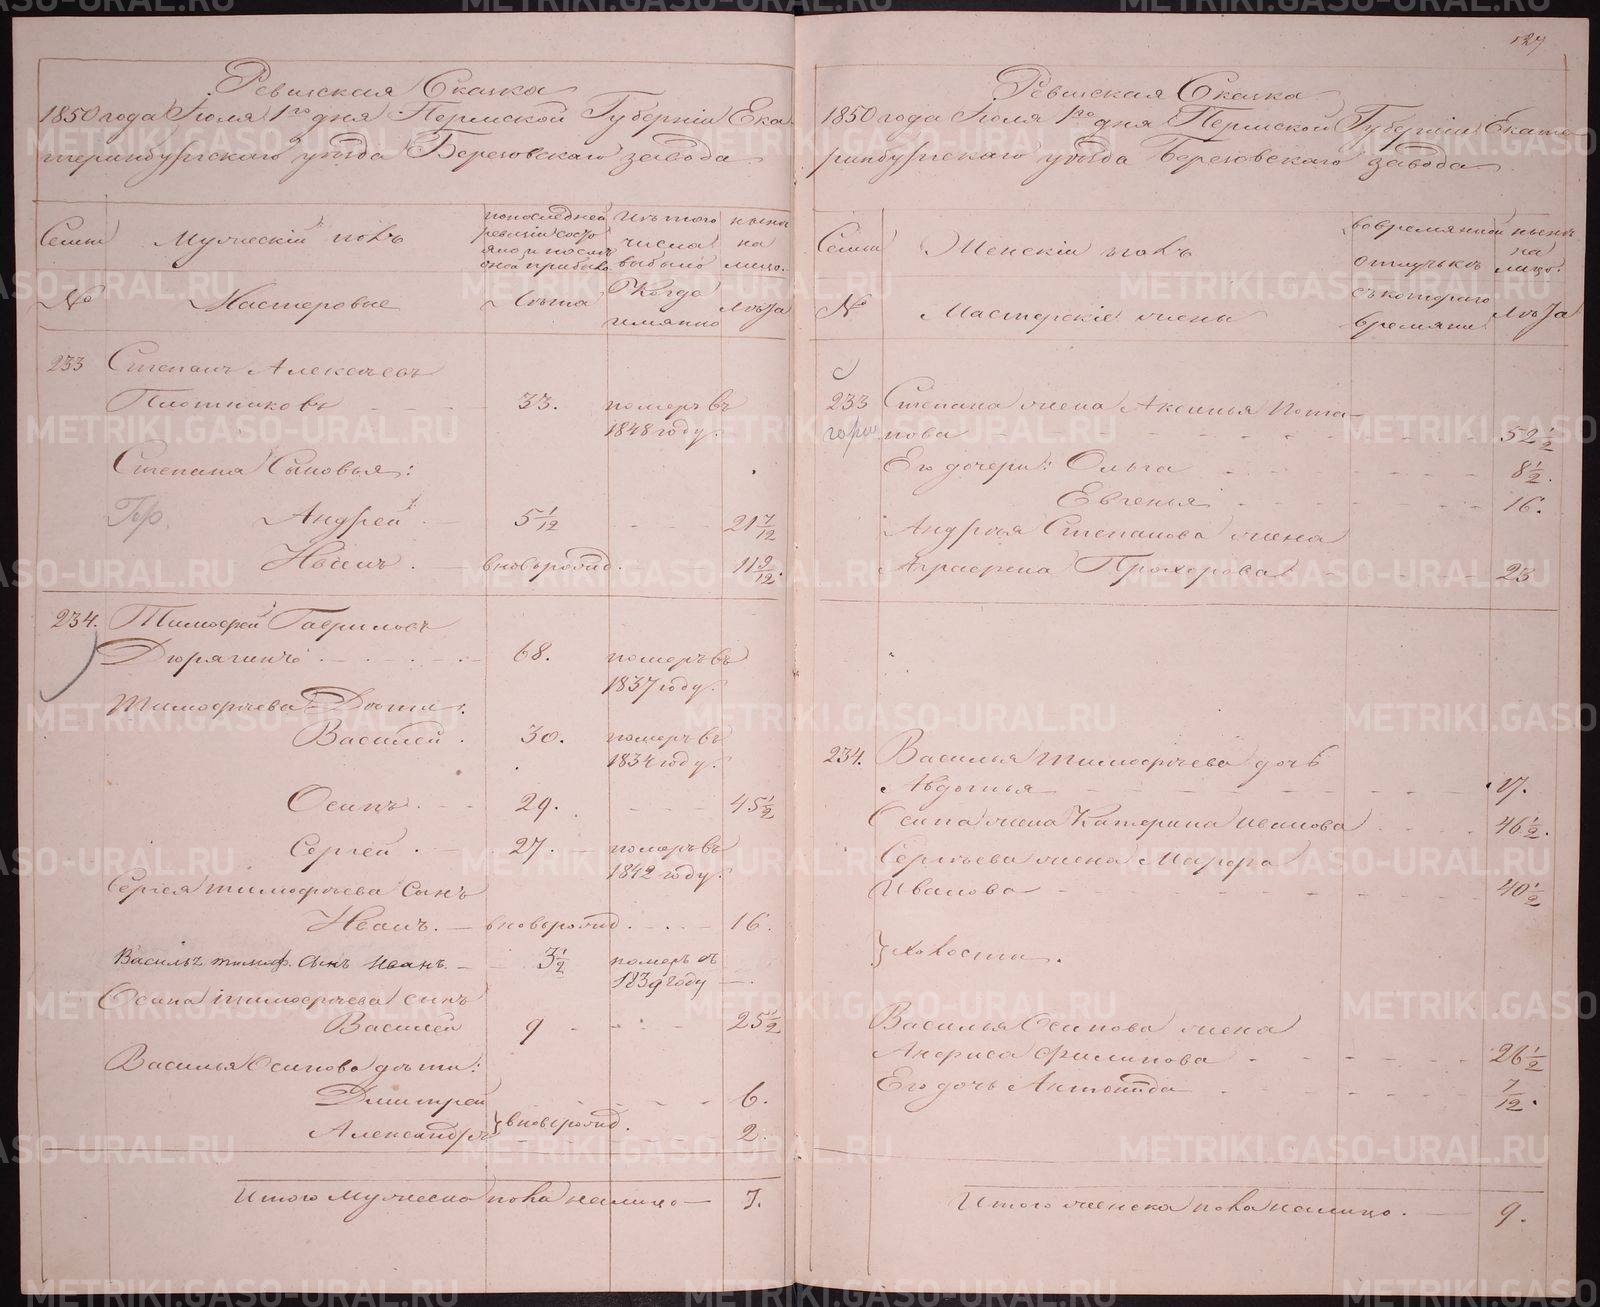 Ревижская Сказка
1850 года Июля 1го дня Пермской Губерніи Ека
теринбургскаго уѣзда Березовскаго завода
Семьи
Мужескій полъ
попоследней
ревизіи состо
яло и послѣ
оной прибыло
Изъ того
числа
выбыло
ныне
на
лицо.
№
Мастеровые
Лѣта
Когда
имянно
Лѣта
233 Степанъ Алексѣевъ
Плотниковъ 33. померъ въ
1848 году.
Степана Сыновья:
Гр. Андрей 5 1/12 21 7/12
Иванъ вновьрожд. 11 9/12.
234. Тимофей Гавриловъ
Дюрягинъ 68. померъ въ
1837 году.
Тимофѣева Дѣти:
Василей 30. померъ въ
1834 году.
Осипъ 29. 45 1/2
Сергей 27. померъ въ
1842 году.
Сергея Тимофѣева сынъ
Иванъ. вновьрожд. 16.
Василья тимоф. сынъ Иванъ 3 1/2 померъ въ
1839 году
Осипа тимофѣева сынъ
Василей 9 25 1/2
Василья Осипова дѣти:
Дмитрей 6.
Александръ } вновьрожд. 2.
Итого мужеска пола налицо 7.
127
Ревижская Сказка
1850 года Июля 1го дня Пермской Губерніи Екате
ринбургскаго уѣзда Березовскаго завода
Семьи
Женскій полъ
вовремянной
отлучькѣ
ныне
на
лицо.
№
Мастерскіе жены
съ котораго
времяни
Лѣта
233 Степана жена Аксинья Пота
пова 52 1/2
Его дочери: Ольга 8 1/2.
Евгенья 16.
Андрѣя Степанова жена
Аграфена Прохорова 23
234. Василья Тимофѣева дочь
Авдотья 17.
Осипа жена Катерина Иванова 46 1/2.
Сергѣева жена Марфа
Иванова 40 1/2
} холосты.
Василья Осипова жена
Анфиса Филипова 26 1/2
Его дочь Антонида 7/12.
Итого женска пола налицо. 9.
METRIKI.GASO-URAL.RU